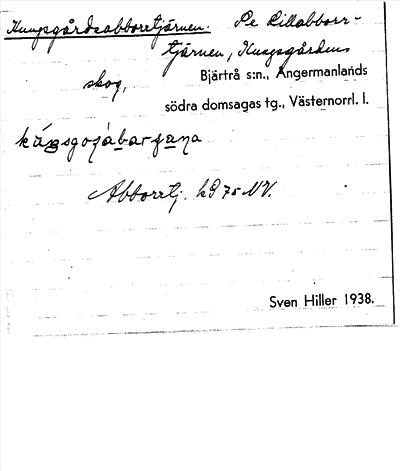 Kungsgårdsabborrtjärnen. Se Lillabborr-
tjärnen, Kungsgårdens
skog,
Bjärtrå s:n., Ångermanlands
södra domsagas tg., Västernorrl. l.
Abborrtj. kg 75 NV.
Sven Hiller 1938.